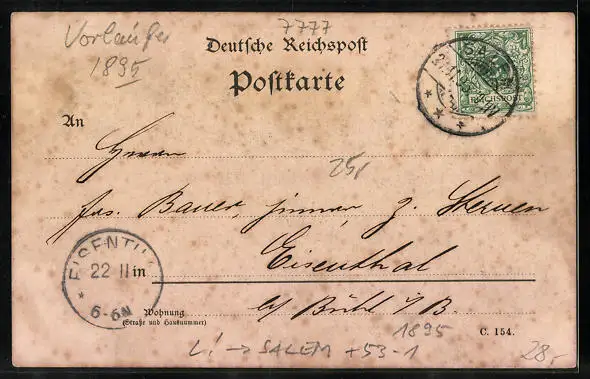 7777
Vorläufer
1895
Deutsche Reichspost
Postkarte
REICHSPOST
An
Herrn
25,-
Jos. Bauer, jünger z. Sternen
EISENTHAL
22 11
6-6N
in
Eisenthal
b/ Bühl i/B.
Wohnung
(Straße und Hausnummer)
1895
C. 154.
L! → SALEM +53-1
28,-